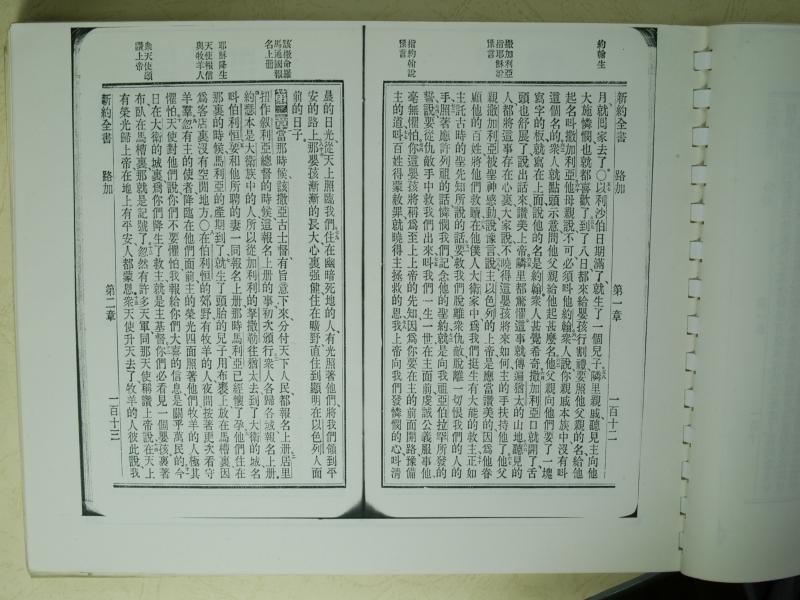 約翰生
撒加利亞
指耶穌說
豫言
指約翰說
豫言
新約全書 路加 第一章 一百十二
月就囘家去了〇以利沙伯日期滿了就生了一個兒子隣里親戚聽見主向他
大施憐憫也就都喜歡了到了八日都來給嬰孩行割禮要照他父親的名給他
起名呌撒加利亞他母親說不可必須呌他約翰衆人說你親戚本族中沒有呌
這個名的衆人就點頭示意問他父親給他起甚麼名他父親向他們要了一塊
寫字的板就寫在上面說他的名是約翰衆人甚覺希奇撒加利亞口就開了舌
頭也舒展了說出話來讚美上帝隣里都驚懼這事就傳遍猶太的山地聽見的
人都將這事存在心裏大家說不曉得這嬰孩將來如何主的手扶持他了他父
親撒加利亞被聖神感動說豫言說主以色列的上帝是應當讚美的因爲他眷
顧他的百姓將他們救贖在他僕人大衞家中爲我們挺生有大能的救主正如
主託古時的聖先知所說的話要救我們脫離衆仇敵脫離一切恨我們的人的
手照著應許列祖的話憐憫我們記念他的聖約就是向我祖亞伯拉罕所發的
誓說要從仇敵手中救我們出來呌我們一生一世在主面前虔誠公義服事他
毫無懼怕你這嬰孩將稱爲至上上帝的先知因爲你要在主的前面開路豫備
主的道呌百姓得蒙赦罪就曉得主拯救的恩我上帝向我們發憐憫的心呌淸
該撒命羅
馬通國報
名上冊
耶穌降生
天使報信
與牧羊人
衆天使頌
讚上帝
晨的日光從天上照臨我們住在幽暗死地的人有光照著他們將我們領到平
安的路上那嬰孩漸漸的長大心裏强健住在曠野直住到顯明在以色列人面
前的日子
第二章當那時候該撒亞古士督有旨意下來分付天下人民都報名上册居里
扭作叙利亞總督的時候這報名上册的事初次頒行衆人各歸各城報名上册
約瑟本是大衞族中的人所以從加利利的拏撒勒往猶太去到了大衞的城名
呌伯利恒要和他所聘的妻一同報名上册那時馬利亞已經懷了孕他們住在
那裏的時候馬利亞的產期到了就生了頭胎的兒子用布裹上放在馬槽裏因
爲客店裏沒有空閒地方〇在伯利恒的郊野有牧羊的人夜間按著更次看守
羊羣忽有主的使者降臨在他們面前主的榮光四面照著他們牧羊的人極其
懼怕天使對他們說你們不要懼怕我報給你們大喜的信息是關乎萬民的今
日在大衞的城裏爲你們降生了救主就是主基督你們必看見一個嬰孩裹著
布臥在馬槽裏那就是記號了忽然有許多天軍同那天使稱讚上帝說在天上
有榮光歸上帝在地上有平安人都蒙恩衆天使升天去了牧羊的人彼此說我
新約全書 路加 第二章 一百十三